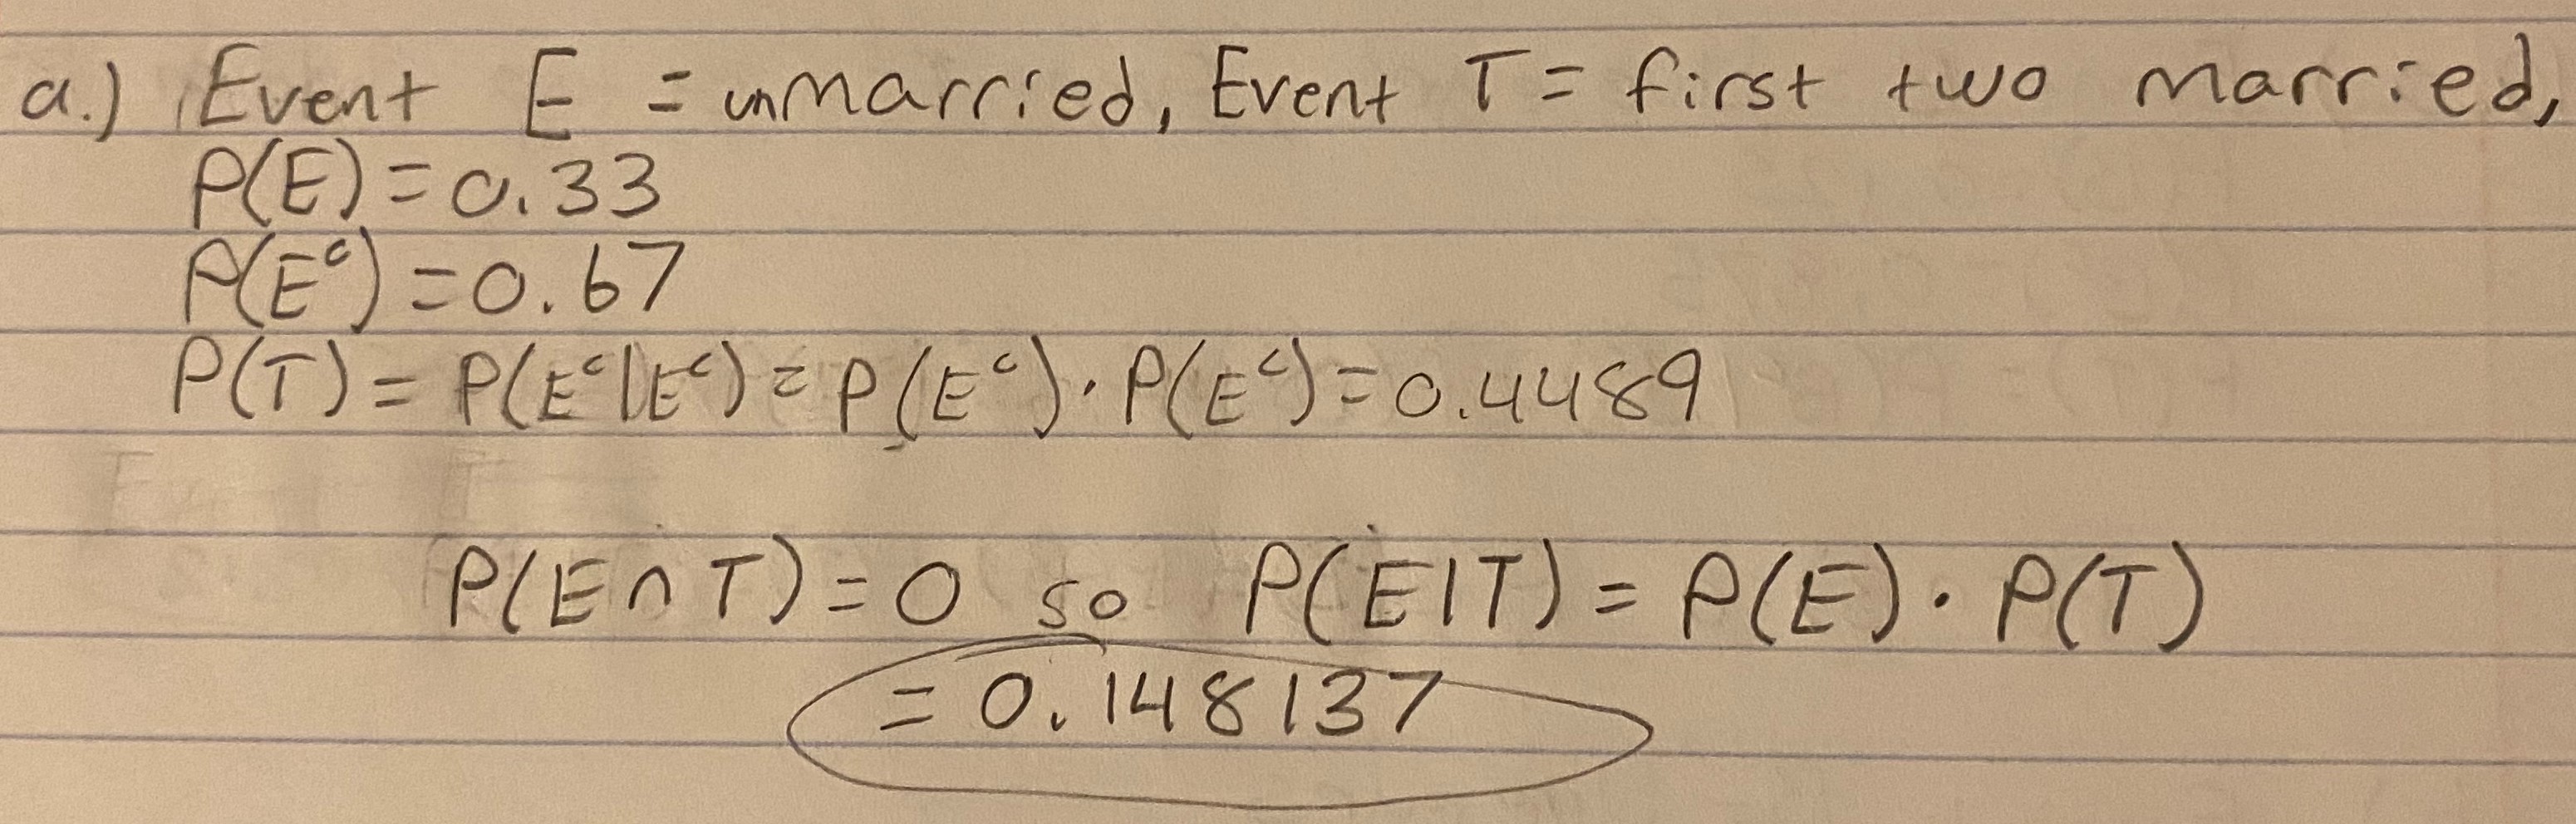 a.) Event E = unmarried, Event T = first two married,
P(E) = 0.33
P(Eᶜ) = 0.67
P(T) = P(Eᶜ|Eᶜ) = P(Eᶜ) · P(Eᶜ) = 0.4489
P(E∩T) = 0 so P(E|T) = P(E) · P(T)
= 0.148137